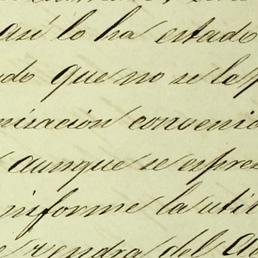 así lo ha estado
do que no se le p
nización convenio
aunque se expres
niforme la util
vendra del